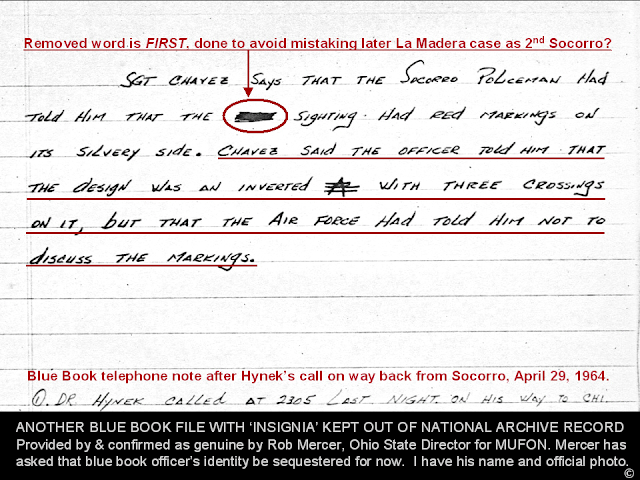 Removed word is FIRST. done to avoid mistaking later La Madera case as 2nd Socorro?
SGT CHAVEZ SAYS THAT THE SOCORRO POLICEMAN HAD
TOLD HIM THAT THE SIGHTING HAD RED MARKINGS ON
ITS SILVERY SIDE. CHAVEZ SAID THE OFFICER TOLD HIM THAT
THE DESIGN WAS AN INVERTED WITH THREE CROSSINGS
ON IT, BUT THAT THE AIR FORCE HAD TOLD HIM NOT TO
DISCUSS THE MARKINGS.
Blue Book telephone note after Hynek's call on way back from Socorro, April 29, 1964.
①. DR. HYNEK CALLED AT 2305 LAST NIGHT. ON HIS WAY TO CHI.
ANOTHER BLUE BOOK FILE WITH 'INSIGNIA' KEPT OUT OF NATIONAL ARCHIVE RECORD
Provided by & confirmed as genuine by Rob Mercer, Ohio State Director for MUFON. Mercer has
asked that blue book officer's identity be sequestered for now. I have his name and official photo.
©